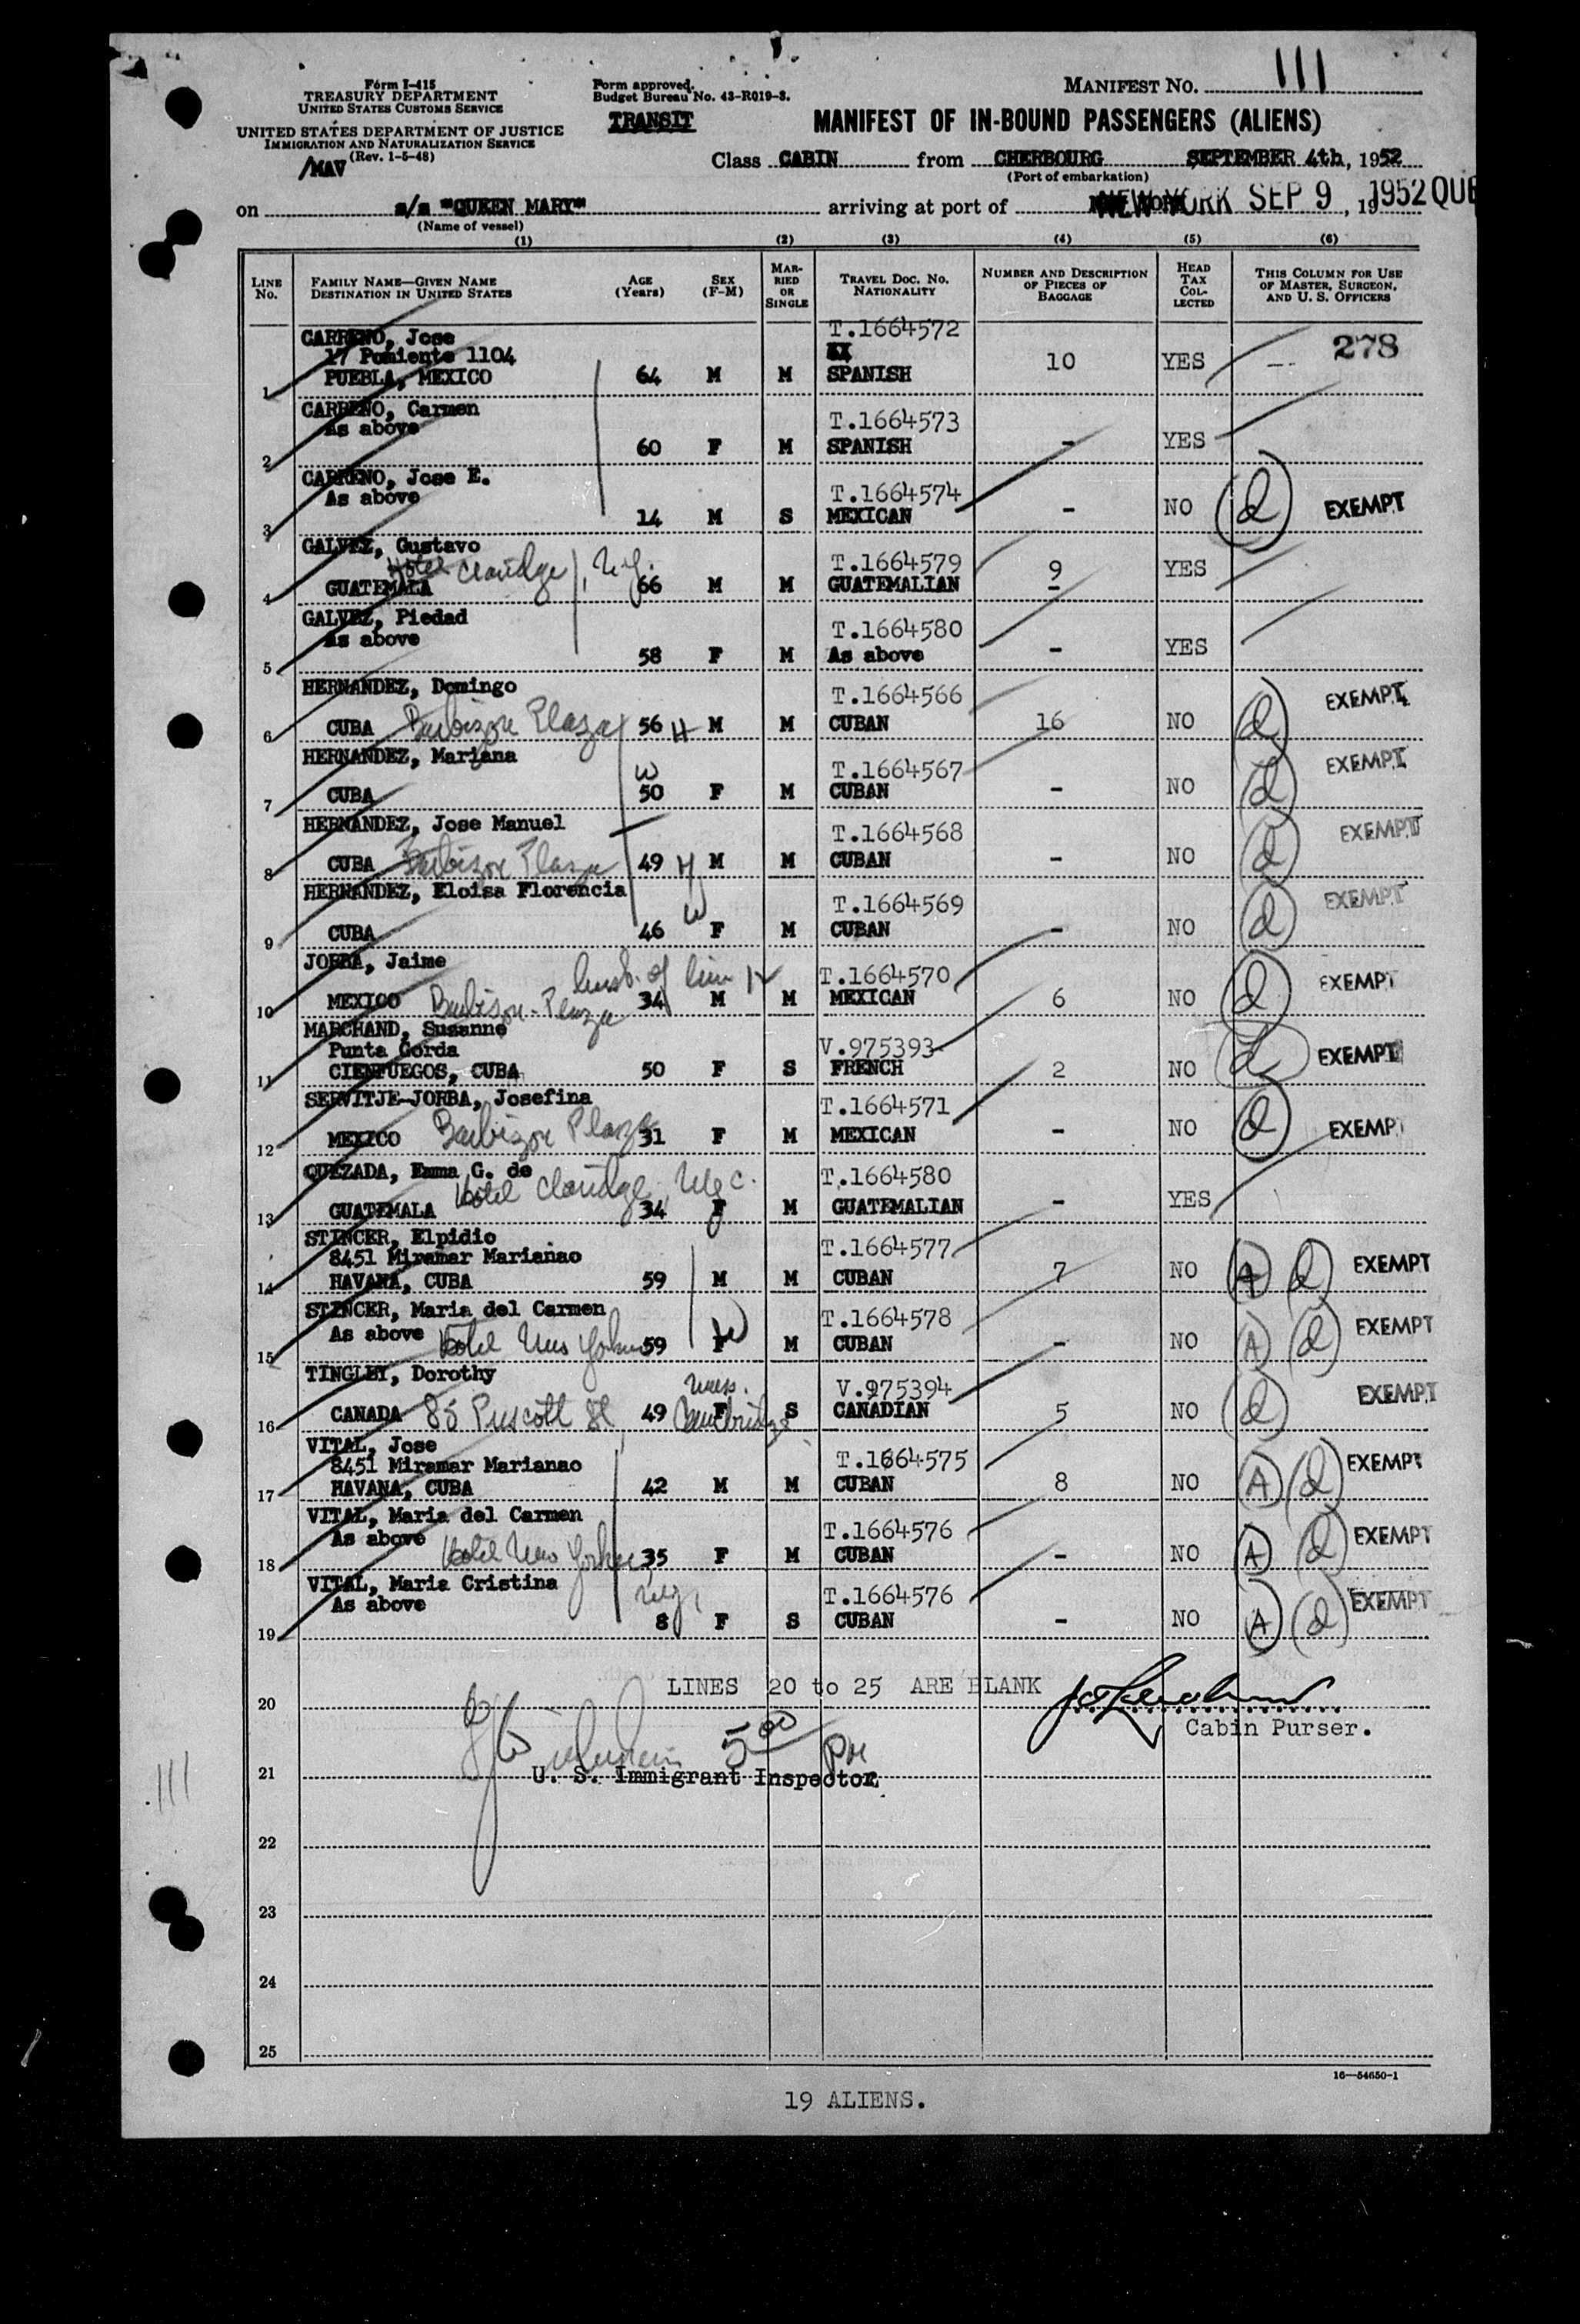 Form I-415
TREASURY DEPARTMENT
UNITED STATES CUSTOMS SERVICE
UNITED STATES DEPARTMENT OF JUSTICE
IMMIGRATION AND NATURALIZATION SERVICE
(Rev. 1-5-48)
/MAV
Form approved.
Budget Bureau No. 43-R019-3.
TRANSIT
MANIFEST NO. 111
MANIFEST OF IN-BOUND PASSENGERS (ALIENS)
Class CABIN from CHERBOURG SEPTEMBER 4th, 1952
(Port of embarkation)
on s/s "QUEEN MARY" arriving at port of NEW YORK SEP 9, 19 1952 QUE
(Name of vessel)
(1) (2) (3) (4) (5) (6)
LINE NO. FAMILY NAME—GIVEN NAME DESTINATION IN UNITED STATES AGE (Years) SEX (F-M) MARRIED OR SINGLE TRAVEL DOC. NO. NATIONALITY NUMBER AND DESCRIPTION OF PIECES OF BAGGAGE HEAD TAX COLLECTED THIS COLUMN FOR USE OF MASTER, SURGEON, AND U. S. OFFICERS
CARRENO, Jose T.1664572 278
17 Poniente 1104 XX 10 YES --
1 PUEBLA, MEXICO 64 M M SPANISH
CARRENO, Carmen T.1664573
As above YES
2 60 F M SPANISH -
CARRENO, Jose E. T.1664574
As above NO d EXEMPT
3 14 M S MEXICAN -
GALVEZ, Gustavo T.1664579
Hotel Claridge, N.Y. 9 YES
4 GUATEMALA 66 M M GUATEMALIAN -
GALVEZ, Piedad T.1664580
As above YES
5 58 F M As above -
HERNANDEZ, Domingo T.1664566 EXEMPT
6 CUBA Barbizon Plaza 56 H M M CUBAN 16 NO d
HERNANDEZ, Mariana W T.1664567 EXEMPT
7 CUBA 50 F M CUBAN - NO d
HERNANDEZ, Jose Manuel T.1664568 EXEMPT
8 CUBA Barbizon Plaza 49 H M M CUBAN - NO d
HERNANDEZ, Eloisa Florencia T.1664569 EXEMPT
9 CUBA 46 W F M CUBAN - NO d
JORBA, Jaime husb. of line 12 T.1664570 EXEMPT
10 MEXICO Barbizon-Plaza 34 M M MEXICAN 6 NO d
MARCHAND, Susanne V.975393
Punta Gorda EXEMPT
11 CIENFUEGOS, CUBA 50 F S FRENCH 2 NO d
SERVITJE-JORBA, Josefina T.1664571
12 MEXICO Barbizon Plaza 31 F M MEXICAN - NO d EXEMPT
QUEZADA, Emma G. de T.1664580
Hotel Claridge, NYC.
13 GUATEMALA 34 F M GUATEMALIAN - YES
STINCER, Elpidio T.1664577
8451 Miramar Marianao EXEMPT
14 HAVANA, CUBA 59 M M CUBAN 7 NO A d
STINCER, Maria del Carmen T.1664578 EXEMPT
15 As above Hotel New Yorker 59 F W M CUBAN - NO A d
TINGLEY, Dorothy Mass. V.975394 EXEMPT
16 CANADA 85 Prescott St 49 F Cambridge S CANADIAN 5 NO d
VITAL, Jose T.1664575
8451 Miramar Marianao EXEMPT
17 HAVANA, CUBA 42 M M CUBAN 8 NO A d
VITAL, Maria del Carmen T.1664576 EXEMPT
As above
18 Hotel New Yorker 35 F M CUBAN - NO A d
VITAL, Maria Cristina T.1664576 EXEMPT
As above NY,
19 8 F S CUBAN - NO A d
LINES 20 to 25 ARE BLANK
20
Cabin Purser.
5 00 PM
21 U. S. Immigrant Inspector.
111
22
23
24
25
16—54650-1
19 ALIENS.